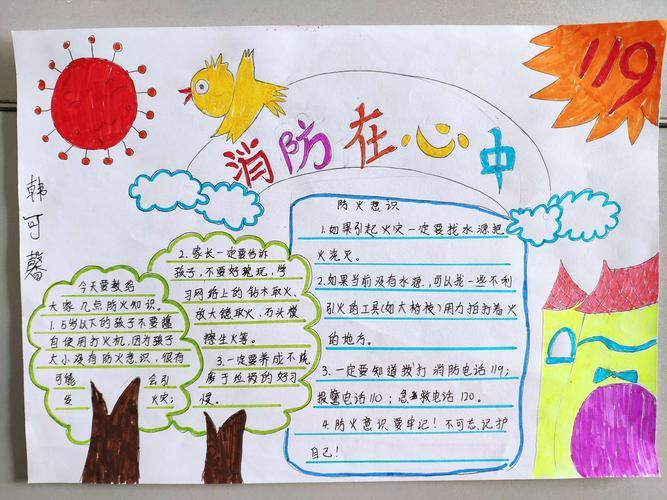 119
消防在心中
韩可馨
今天要教给
大家几点防火知识。
1.5岁以下的孩子不要擅
自使用打火机,因为孩子
太小没有防火意识,很有
可能 会引
发 火灾;
2.家长一定要告诉
孩子,不要好就玩,学
习网络上的钻木取火,
放大镜取火,石头摸
擦生火等。
3.一定要养成不烧
废于垃圾的好习
惯。
防火意识
1.如果引起火灾一定要找水源把
火浇灭。
2.如果当前没有水源,可以找一些不利
引火的工具(如大树枝)用力拍打着火
的地方。
3.一定要知道拨打 消防电话119;
报警电话110;急救电话120。
4.防火意识要牢记!不可忘记护
自己!